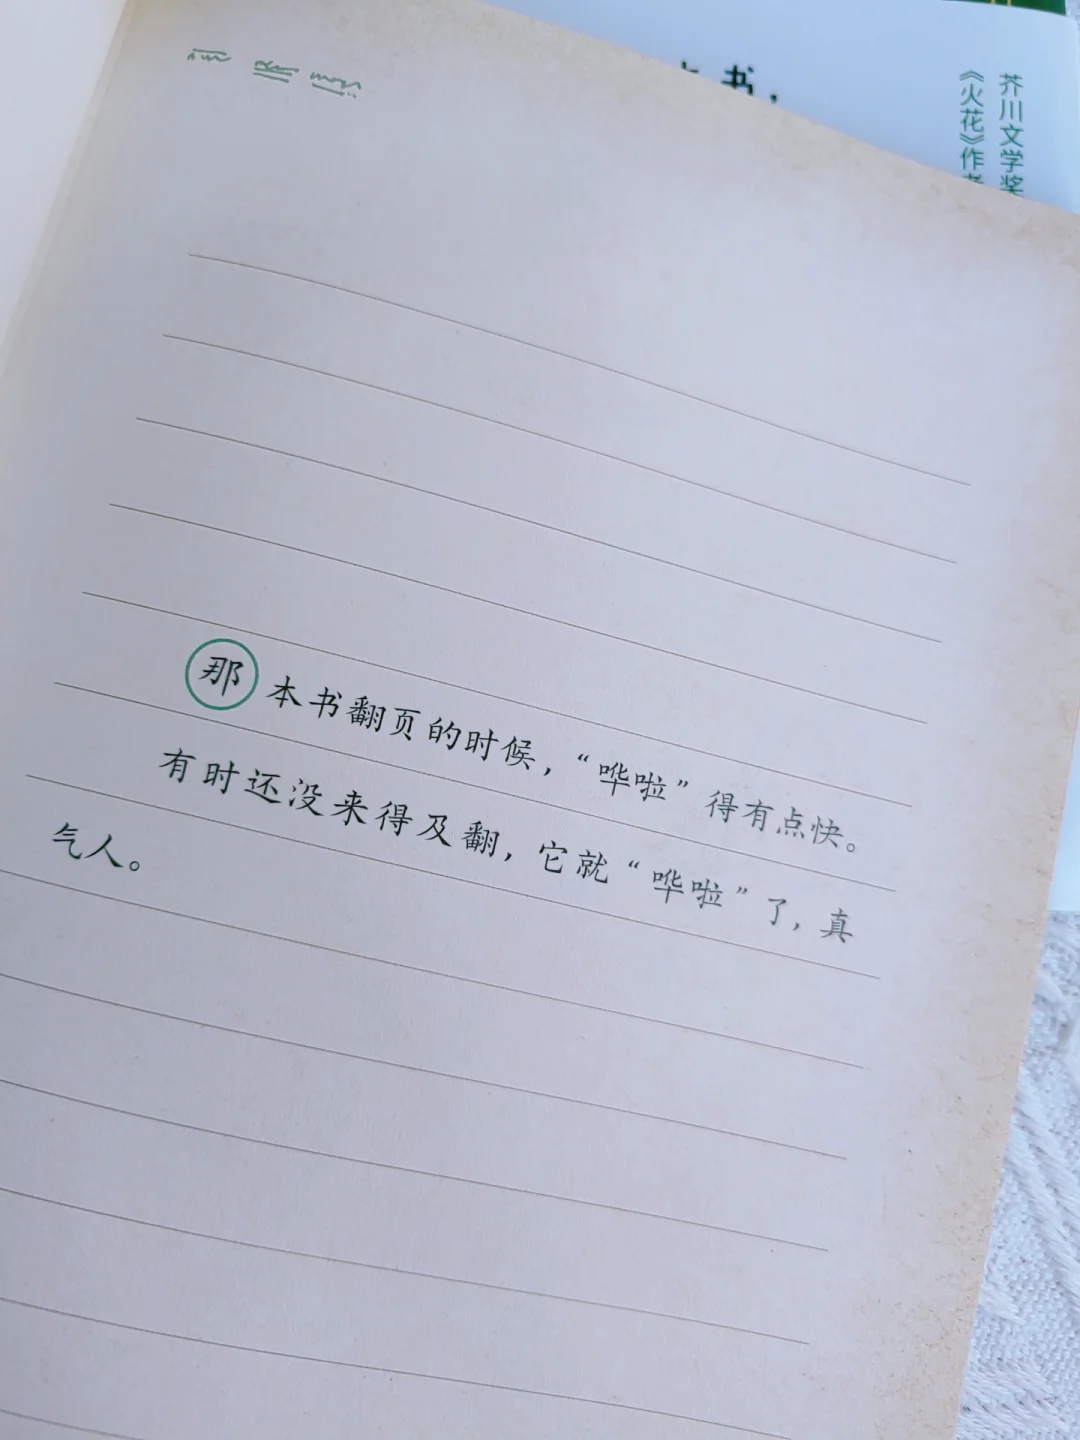 书，
芥川文学奖
《火花》作者
那本书翻页的时候，“哗啦”得有点快。
有时还没来得及翻，它就“哗啦”了，真
气人。